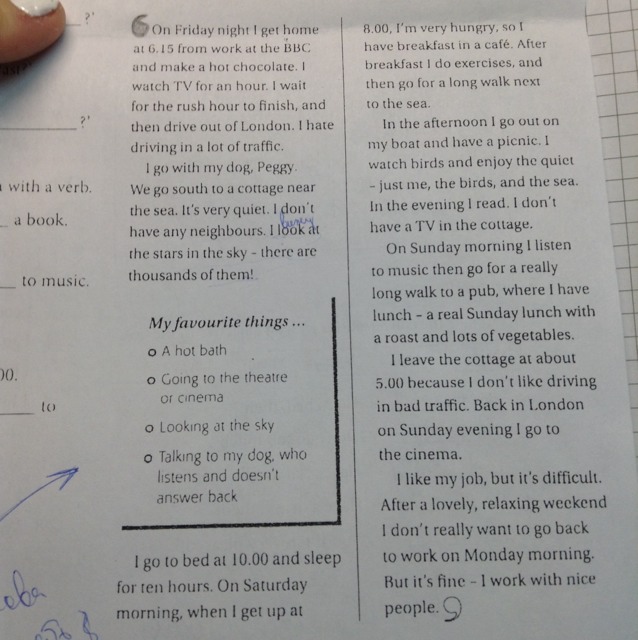 ?'
6 On Friday night I get home
at 6.15 from work at the BBC
and make a hot chocolate. I
watch TV for an hour. I wait
for the rush hour to finish, and
then drive out of London. I hate
driving in a lot of traffic.
I go with my dog, Peggy.
We go south to a cottage near
the sea. It's very quiet. I don't
have any neighbours. I look at
the stars in the sky – there are
thousands of them!
My favourite things ...
A hot bath
Going to the theatre
or cinema
Looking at the sky
Talking to my dog, who
listens and doesn't
answer back
I go to bed at 10.00 and sleep
for ten hours. On Saturday
morning, when I get up at
8.00, I'm very hungry, so I
have breakfast in a café. After
breakfast I do exercises, and
then go for a long walk next
to the sea.
In the afternoon I go out on
my boat and have a picnic. I
watch birds and enjoy the quiet
– just me, the birds, and the sea.
In the evening I read. I don't
have a TV in the cottage.
On Sunday morning I listen
to music then go for a really
long walk to a pub, where I have
lunch – a real Sunday lunch with
a roast and lots of vegetables.
I leave the cottage at about
5.00 because I don't like driving
in bad traffic. Back in London
on Sunday evening I go to
the cinema.
I like my job, but it's difficult.
After a lovely, relaxing weekend
I don't really want to go back
to work on Monday morning.
But it's fine – I work with nice
people. 9
?'
with a verb.
a book.
to music.
00.
to